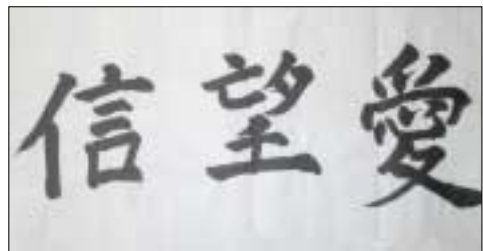 信望愛